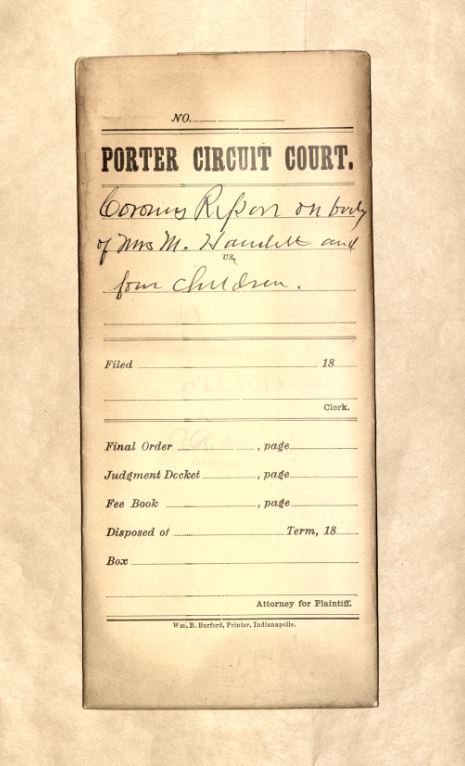 NO.
PORTER CIRCUIT COURT.
Coroners Report on body
of Mrs M. and
vs.
four children.
Filed 18
Clerk.
Final Order , page
Judgment Docket , page
Fee Book , page
Disposed of Term, 18
Box
Attorney for Plaintiff.
Wm. B. Burford, Printer, Indianapolis.